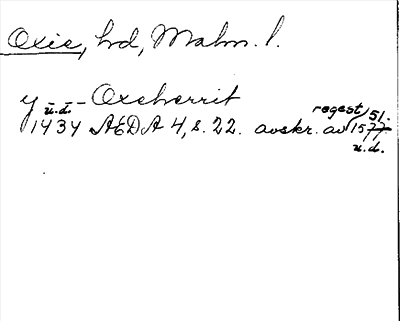 Oxie, hd, Malm. l.
y -- Oxeherrit
u.d. regest 51.
1434 AEDA 4, s. 22. avskr. av 1577
u.d.